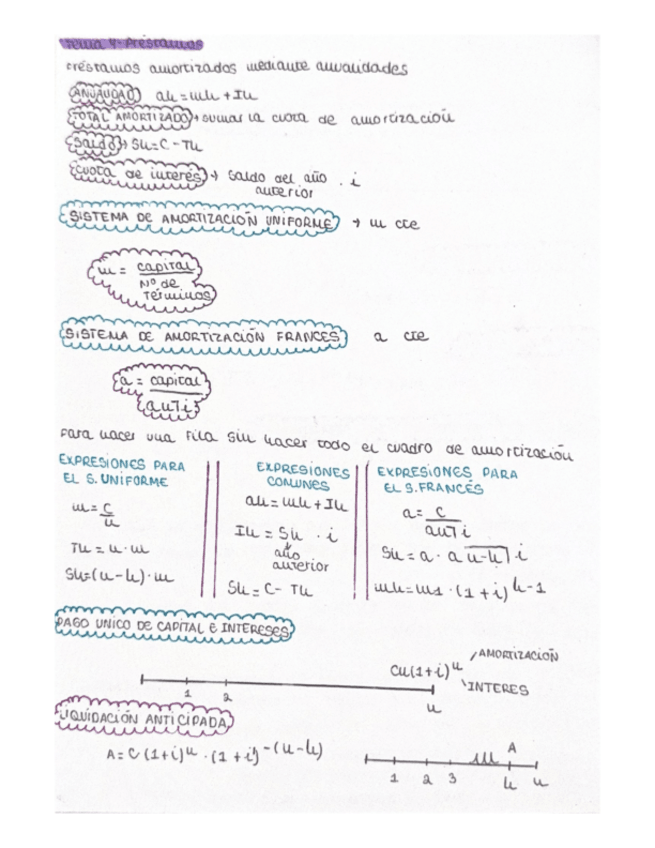 Tema 4: Préstamos
Préstamos amortizados mediante anualidades
ANUALIDAD ak = mk + Ik
TOTAL AMORTIZADO → sumar la cuota de amortización
Saldo → Sk = C - Tk
cuota de interés → saldo del año anterior · i
SISTEMA DE AMORTIZACIÓN UNIFORME → m cte
m = capital / Nº de términos
SISTEMA DE AMORTIZACIÓN FRANCES a cte
a = capital / an⌉i
Para hacer una fila sin hacer todo el cuadro de amortización
EXPRESIONES PARA EL S. UNIFORME
m = C / n
Tk = k · m
Sk = (n - k) · m
EXPRESIONES COMUNES
ak = mk + Ik
Ik = Sk · i
año anterior
Sk = C - Tk
EXPRESIONES PARA EL S. FRANCÉS
a = C / an⌉i
Sk = a · a n-k⌉ i
mk = m1 · (1 + i)^k-1
PAGO UNICO DE CAPITAL E INTERESES
Cn(1+i)^n AMORTIZACIÓN
INTERES
1 2 n
LIQUIDACIÓN ANTICIPADA
A = C (1+i)^n · (1+i)^-(n-k)
A
1 2 3 k n